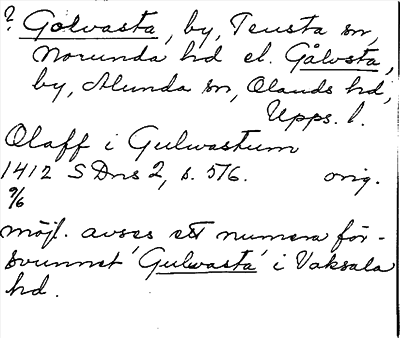 ? Golvasta, by, Tensta sn,
Norunda hd el. Gålvsta,
by, Alunda sn, Olands hd,
Upps. l.
Olaff i Gulwastum
1412 SDns 2, s. 516. orig.
9/6
möjl. avses ett numera för-
svunnet 'Gulwasta' i Vaksala
hd.